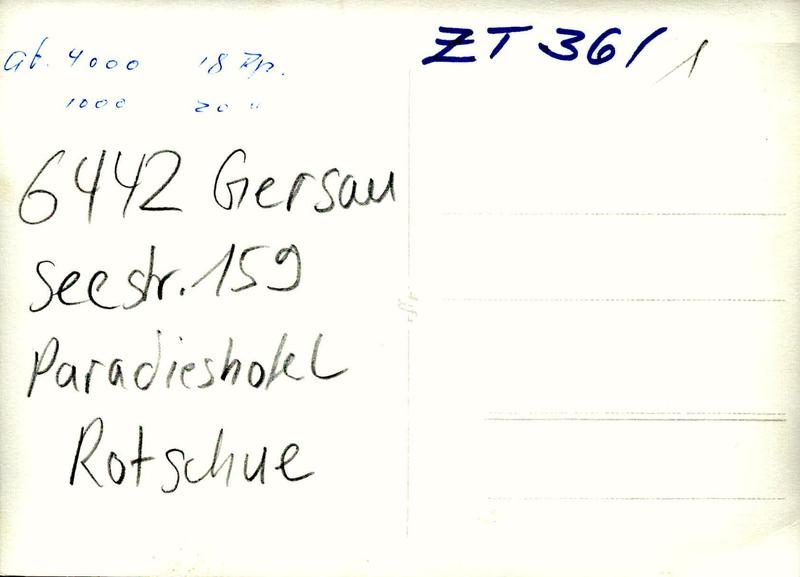 ab. 4000 18 Rp.
1000 20 "
ZT 36/1
6442 Gersau
Seestr. 159
Paradieshotel
Rotschue